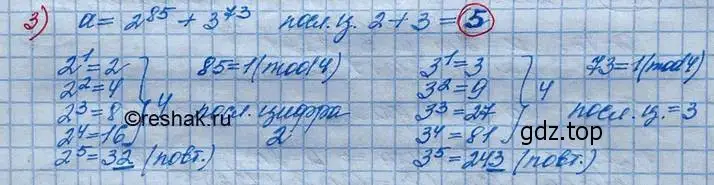 3) a = 2^85 + 3^73 посл.ц. 2 + 3 = 5
2^1 = 2 85 = 1(mod 4) 3^1 = 3 73 = 1(mod 4)
2^2 = 4 3^2 = 9
2^3 = 8 4 посл. цифра 3^3 = 27 4 посл. ц. = 3
2^4 = 16 2 3^4 = 81
2^5 = 32 (повт.) 3^5 = 243 (повт.)
©reshak.ru
gdz.top